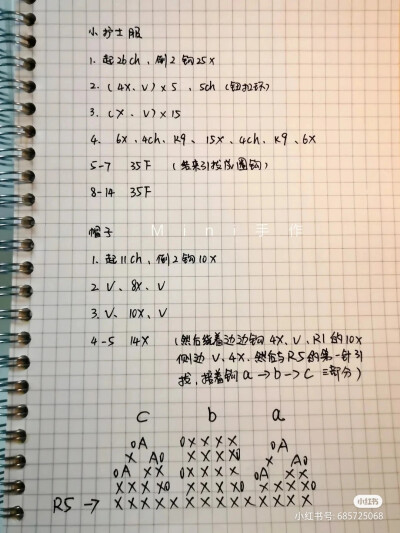 小护士服
1. 起26ch，倒2钩25X
2.（4X、V）×5 、5ch（钮扣环）
3.（X 、V）×15
4. 6X、4ch、K9、15X、4ch、K9、6X
5-7 35F （结束引拔成圈钩）
8-14 35F
Mini手作
帽子
1. 起11ch，倒2钩10X
2. V、8X、V
3. V、10X、V
4-5 14X （然后绕着边边钩4X、V、R1的10X
侧边V、4X，然后与R5的第一针引
拔，接着钩a→b→c三部分）
c b a
0A 0XXXX 0A
X A0 XXXX0 X A0
0A XX 0XXXX 0A XX
XXXX0 XXXX0 XXXX0
R5 → XXXXXXXXXXXXXX
小红书
小红书号: 685725068